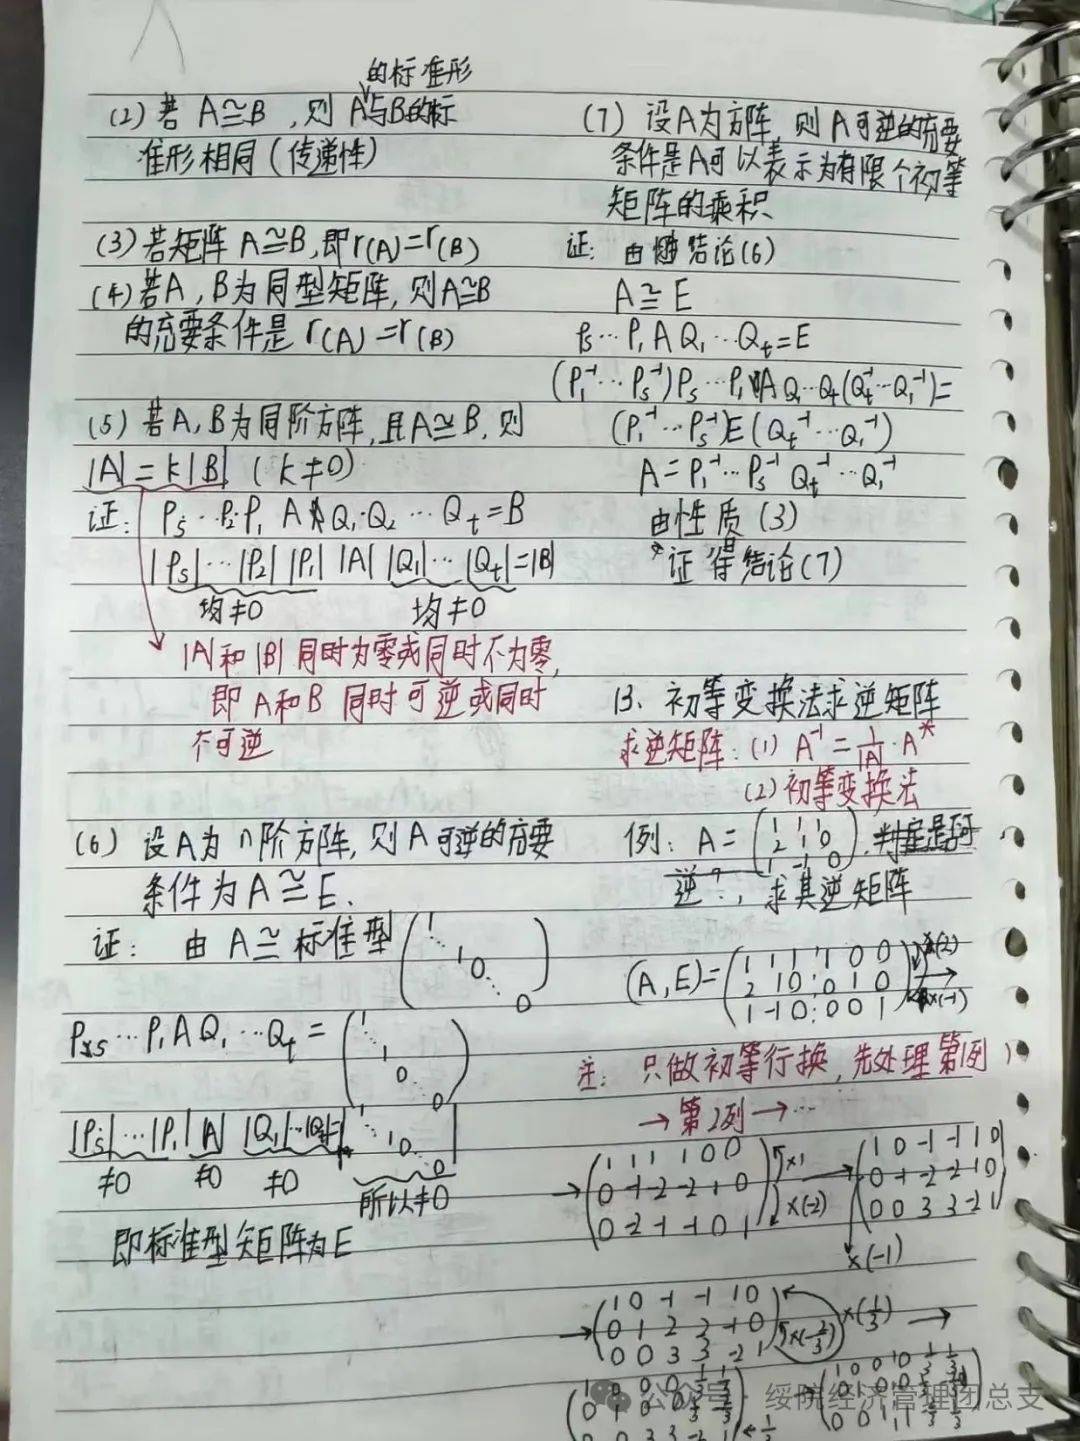 的标准形
(2) 若 A≅B , 则 A与B的标
准形相同 (传递性)
(3) 若矩阵 A≅B, 即 r(A)=r(B)
(4) 若A, B为同型矩阵, 则A≅B
的充要条件是 r(A)=r(B)
(5) 若A, B为同阶方阵, 且A≅B, 则
|A|=k|B| (k≠0)
证: Ps…P2·P1 A Q1·Q2 … Qt=B
|Ps|…|P2| |P1| |A| |Q1|…|Qt|=|B|
均≠0 均≠0
|A|和|B|同时为零或同时不为零,
即 A和B 同时可逆或同时
不可逆
(6) 设A为n阶方阵, 则A可逆的充要
条件为A≅E.
证: 由 A≅标准型 (1 ⋱ 1 0 ⋱ 0)
Ps…P1AQ1…Qt = (1 ⋱ 1 0 ⋱ 0)
|Ps|…|P1| |A| |Q1|…|Qt|=|1 ⋱ 1 0 ⋱ 0|
≠0 ≠0 ≠0 所以≠0
即标准型矩阵为E
(7) 设A为方阵, 则A可逆的充要
条件是A可以表示为有限个初等
矩阵的乘积
证: 由 结论(6)
A≅E
Ps…P1AQ1…Qt=E
(P1⁻¹…Ps⁻¹)Ps…P1AQ1…Qt(Qt⁻¹…Q1⁻¹)=
(P1⁻¹…Ps⁻¹)E(Qt⁻¹…Q1⁻¹)
A=P1⁻¹…Ps⁻¹Qt⁻¹…Q1⁻¹
由性质(3)
证得结论(7)
13、初等变换法求逆矩阵
求逆矩阵: (1) A⁻¹=1/|A|·A*
(2) 初等变换法
例: A=
1 1 1
2 1 0
1 -1 0
, 判定是否可
逆?, 求其逆矩阵
(A,E)=
1 1 1 1 0 0
2 1 0 0 1 0
1 -1 0 0 0 1
×(-1)
注: 只做初等行换, 先处理第1列
→第2列→…
→
1 1 1 1 0 0
0 -1 -2 -2 1 0
0 -2 -1 -1 0 1
×1
×(-2)
→
1 0 -1 -1 1 0
0 -1 -2 -2 1 0
0 0 3 3 -2 1
×(-1)
→
1 0 -1 -1 1 0
0 1 2 2 -1 0
0 0 3 3 -2 1
×(-2/3)
×(1/3)
→
公众号 · 绥院经济管理团总支